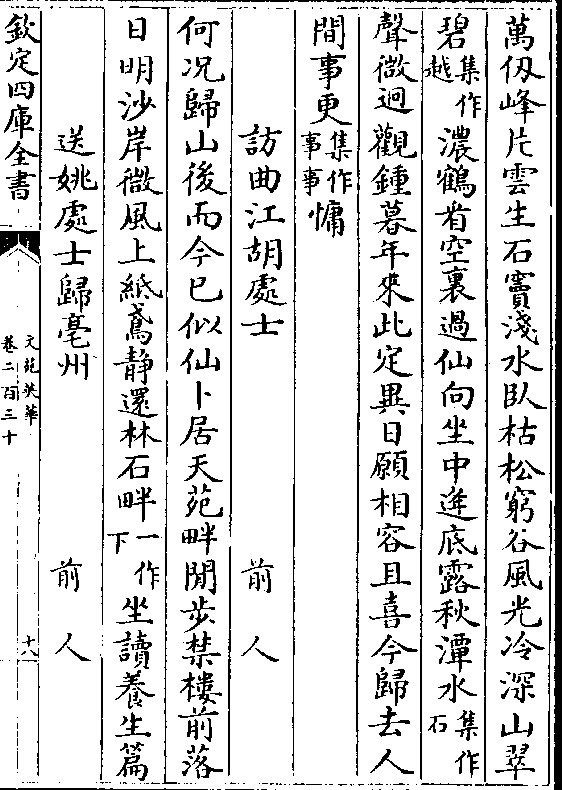 萬仭峰片雲生石竇淺水臥枯松窮谷風光冷深山翠
碧集作越濃鶴看空裏過仙向坐中逢底露秋潭水集作石
聲微迥觀鍾暮年來此定異日願相容且喜今歸去人
間事更集作事事慵
訪曲江胡處士 前人
何況歸山後而今已似仙卜居天苑畔閒步禁樓前落
日明沙岸微風上紙鳶静還林石畔一作下坐讀養生篇
送姚處士歸亳州 前人
欽定四庫全書
文苑英華
卷二百三十
十八